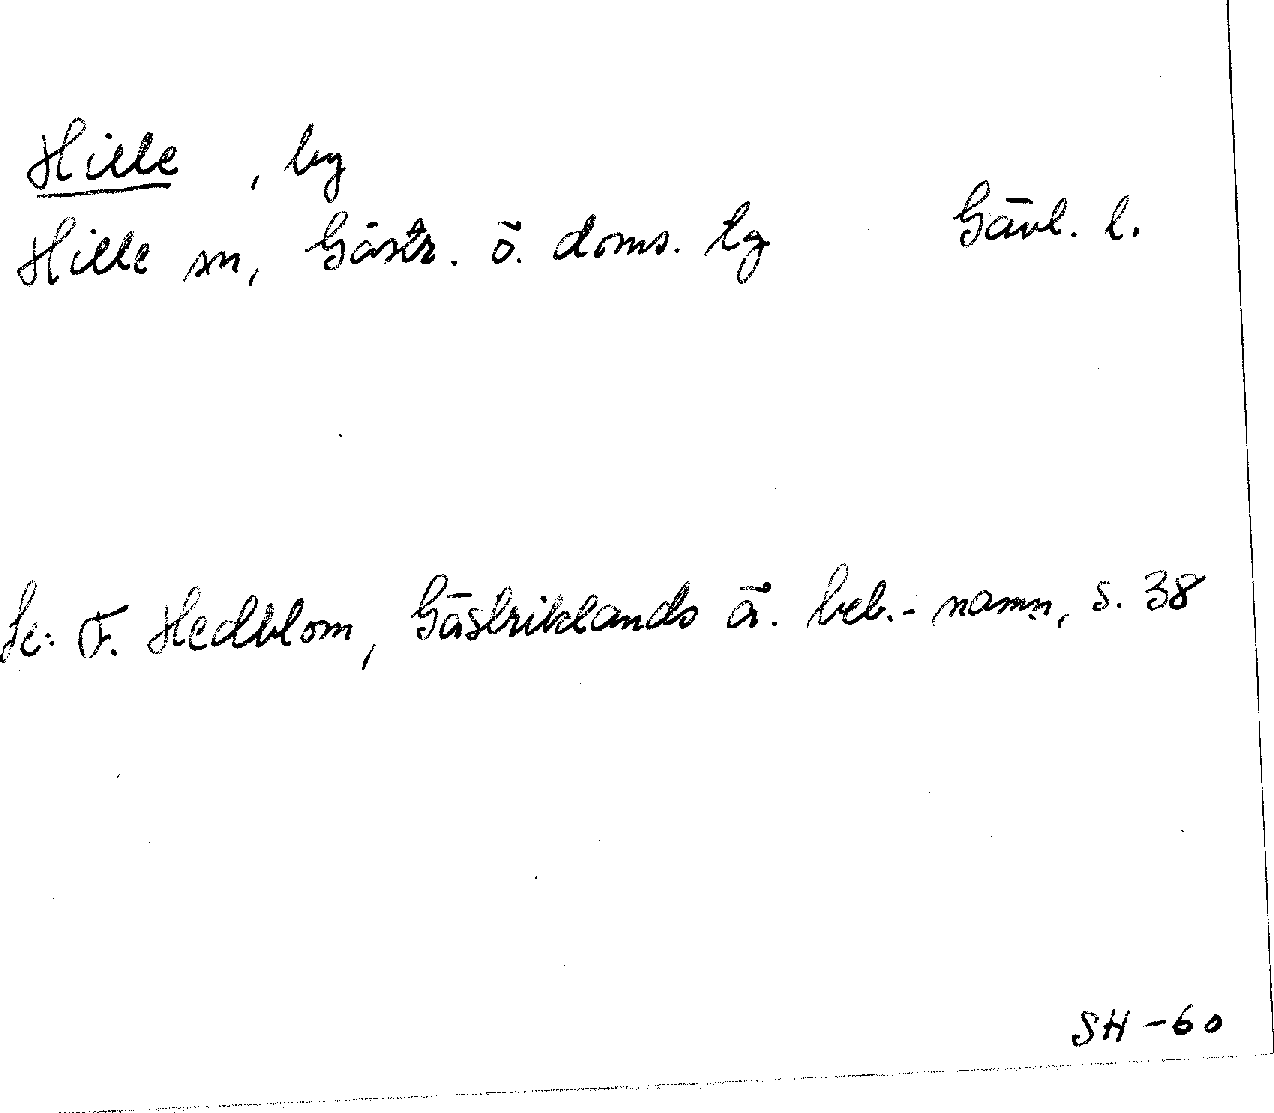 Hille , by
Hille sn, Gästr. ö. doms. lg Gävl. l.
Se: F. Hedblom, Gästriklands ä. beb.-namn, s. 38
SH-60